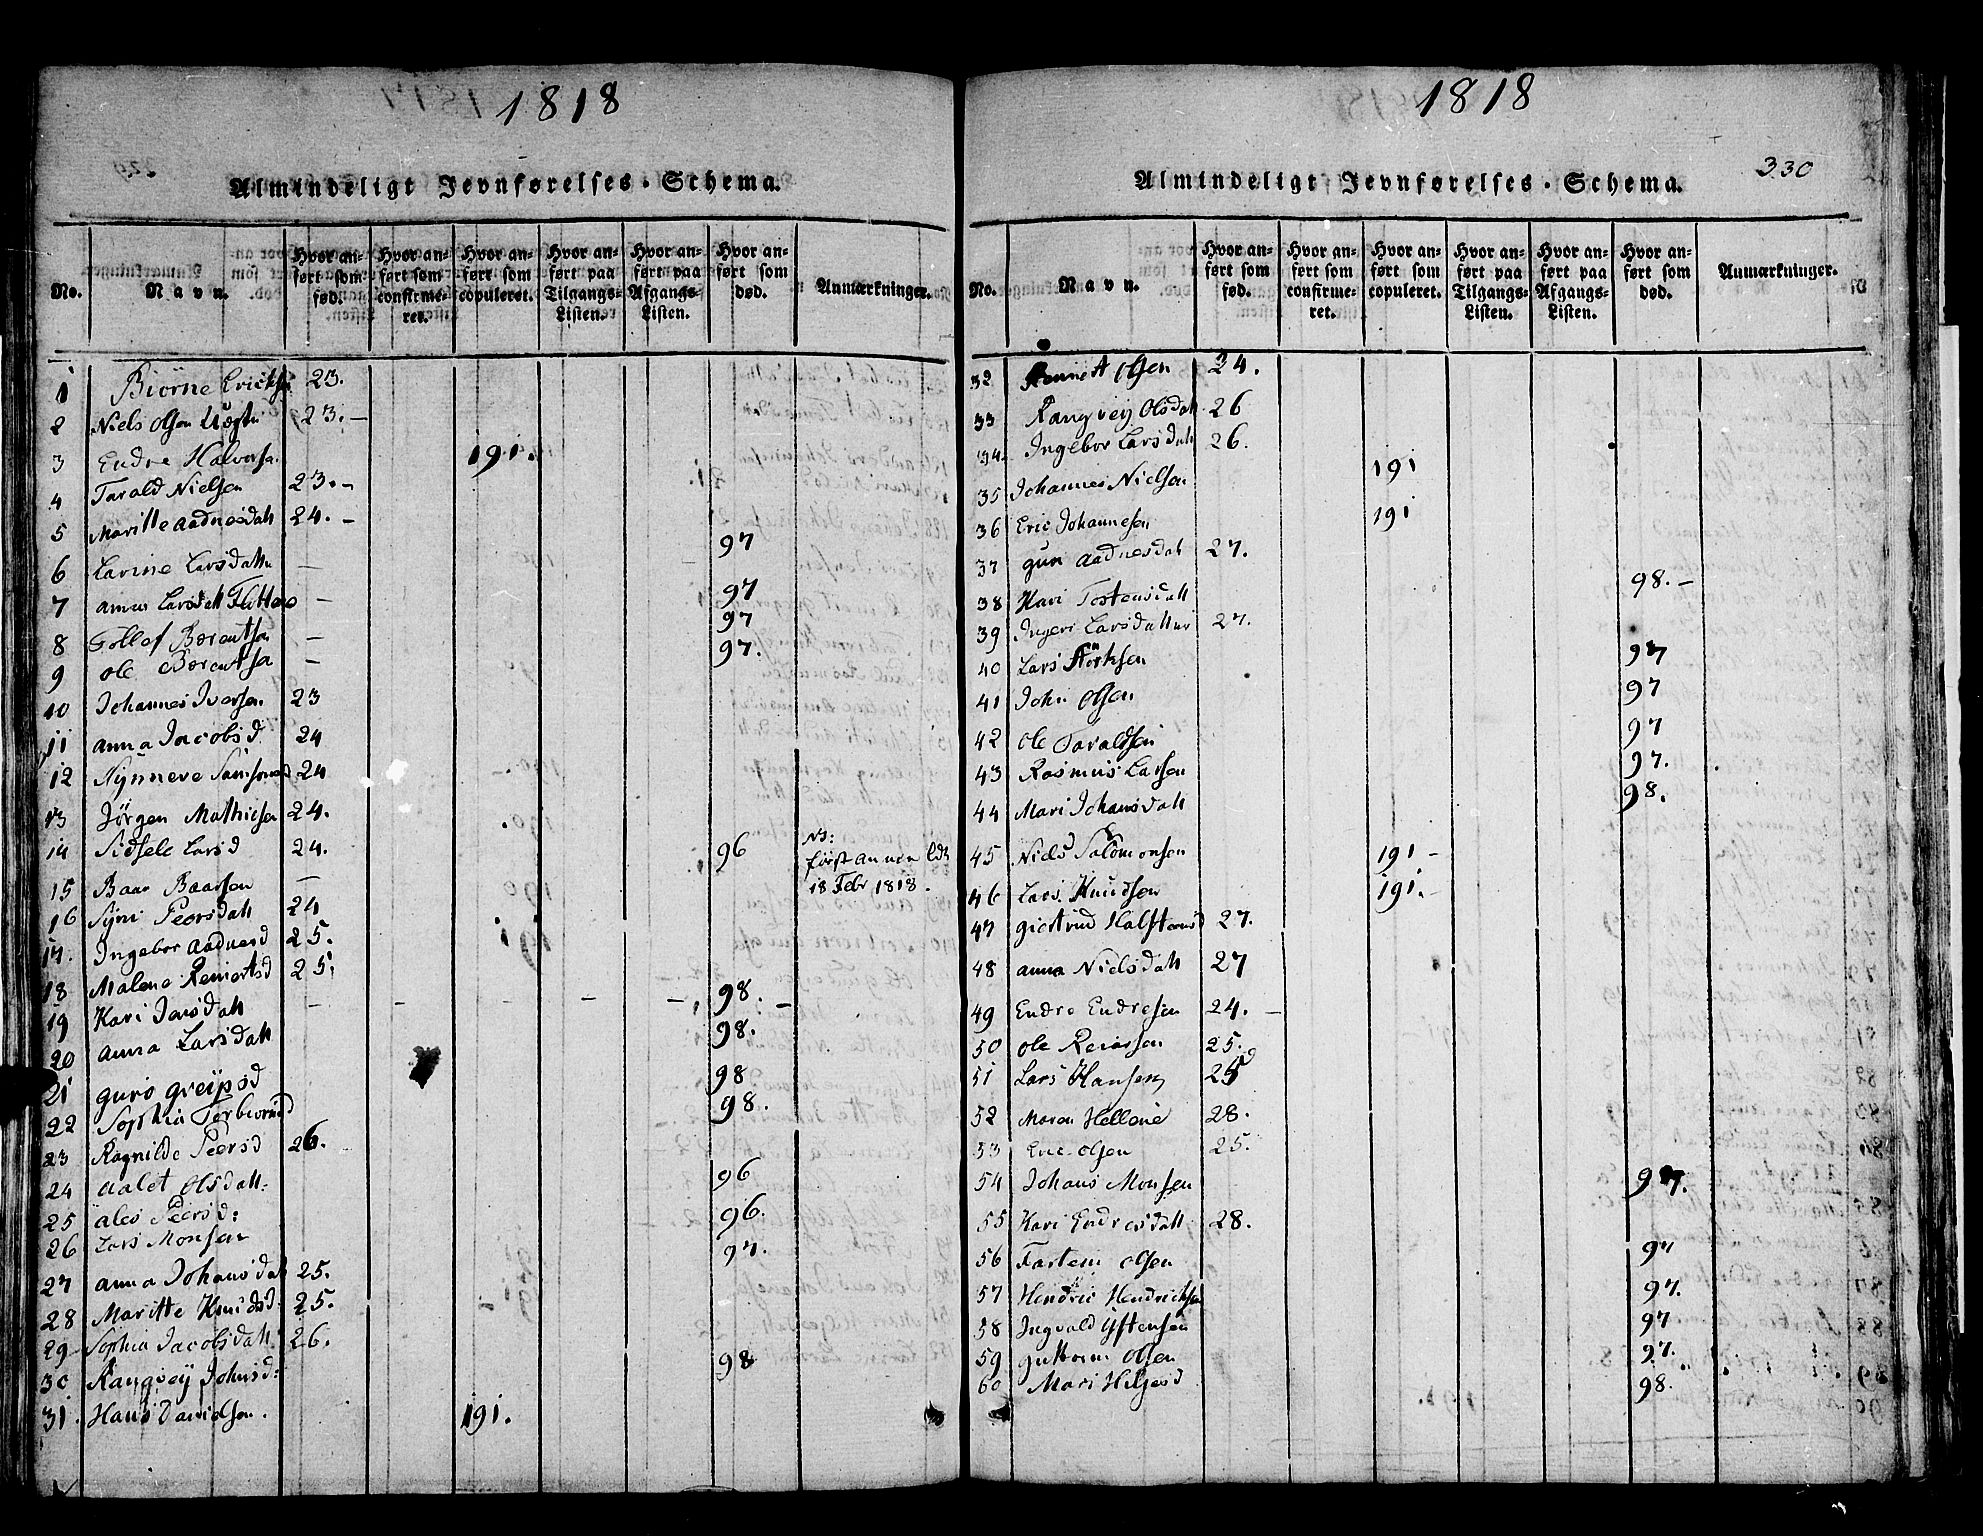 1818
Almindeligt Jevnførelses-Schema.
No. | Navn. | Hvor anført som fød. | Hvor anført som confirmeret. | Hvor anført som copuleret. | Hvor anført paa Tilgangs-Listen. | Hvor anført paa Afgangs-Listen. | Hvor anført som død. | Anmærkninger.
1 Biörne Ericks 23.
2 Niels Olsen 23. –
3 Endre Halvorsn 191.
4 Tarald Nielsen 23. –
5 Maritte Aadnesdatt 24. –
6 Larine Larsdattr – 97
7 Anna Larsdatt – 97
8 Tollef Bærentsen – 97
9 Ole Bærentsen – 97.
10 Johannes Iversen 23
11 Anna Jacobsd 24
12 Synneve Samsonsd 24
13 Jörgen Mathiesen 24.
14 Sidsele Larsd 24.
15 Baar Baarsen – 96 NB: først 18 Febr 1818.
16 Syni Peersdatt 24
17. Ingebor Aadnesd 25.
18 Malene Reiertsd 25.
19 Kari Jensdatt – – – – 98. –
20 Anna Larsdatt 98.
21 Guro Greipsd 98
22 Sophia Torbiornsd 98.
23 Ragnilde Peersd 26.
24 Aalet Olsdatt: 96
25 Ales Peersd: 96.
26 Lars Monsen 97.
27 Anna Johansdat 25.
28 Maritte Knudsd. 25.
29 Sophia Jacobsdatt. 26.
30 Rangvey Johnsd: 98
31. Hans Davidsen. 191.
1818
330
Almindeligt Jevnførelses-Schema.
No. | Navn. | Hvor anført som fød. | Hvor anført som confirmeret. | Hvor anført som copuleret. | Hvor anført paa Tilgangs-Listen. | Hvor anført paa Afgangs-Listen. | Hvor anført som død. | Anmærkninger.
32 Olsen 24.
33 Rangvey Olsdatt 26
34. Ingebor Larsdatt 26.
35 Johannes Nielsen 191
36 Eric Johannesen 191
37 Guri Aadnesdatt 27.
38 Kari Tostensdatt 98. –
39 Ingeri Larsdatter 27.
40 Lars 97
41 John Olsen 97
42 Ole Taraldsen 97
43 Rasmus Larsen 97.
44 Mari Johansdatt 98.
45 Niels Salomonsen 191 –
46 Lars Knudsen 191. –
47 Giertrud Halstensd 27.
48 Anna Nielsdatt 27
49 Endre Endresen 24. –
50 Ole Reiersen 25.
51 Lars Hansen 25
52 Maren Hellene 28.
53 Eric Olsen 25.
54 Johans Monsen 97.
55 Kari Endresdatt 28.
56 Olsen 97
57 Hendric Hendricksen 97.
58 Ingvald 97
59 Guttorm Olsen 97.
60 Mari Helgesd 98.